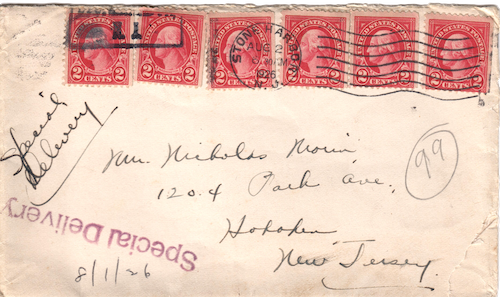 UNITED STATES POSTAGE
2 CENTS 2
UNITED STATES POSTAGE
2 CENTS 2
UNITED STATES POSTAGE
2 CENTS 2
UNITED STATES POSTAGE
2 CENTS 2
UNITED STATES POSTAGE
2 CENTS 2
UNITED STATES POSTAGE
2 CENTS 2
STONE HARBOR
AUG 2
N.J.
Special
Delivery
Mr. Nicholas Morin,
1204 Park Ave.,
Hoboken
New Jersey.
99
Special Delivery
8/1/26